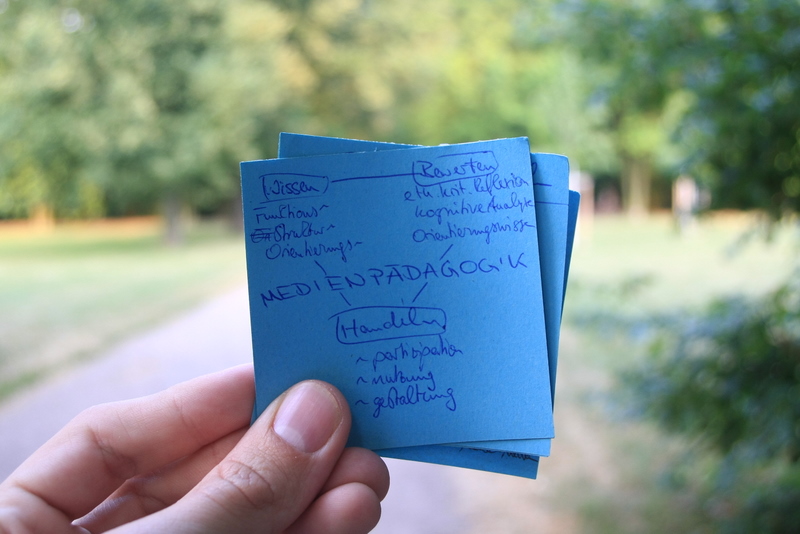 Wissen
Bewerten
Funktions~
Struktur~
Orientierungs~
eth krit. Reflexion
kognitive Analyse
Orientierungswisse
MEDIENPÄDAGOGIK
Handeln
~ partizipation
~ nutzung
~ gestaltung